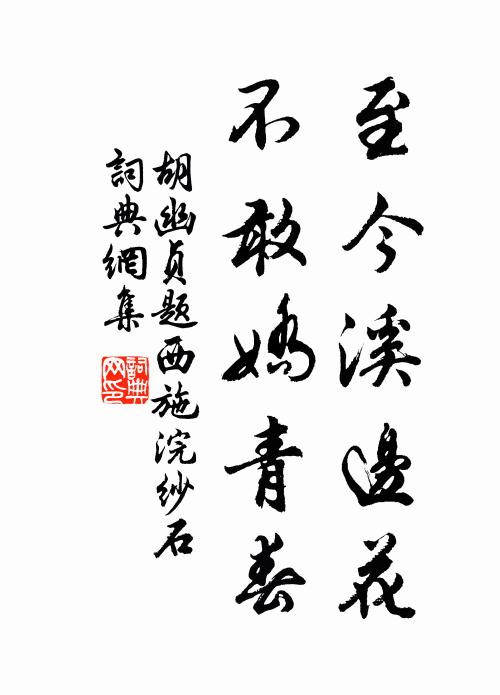 至今溪邊花
不敢嬌青春
胡幽貞題西施浣紗石
詞典網集
詞典网印